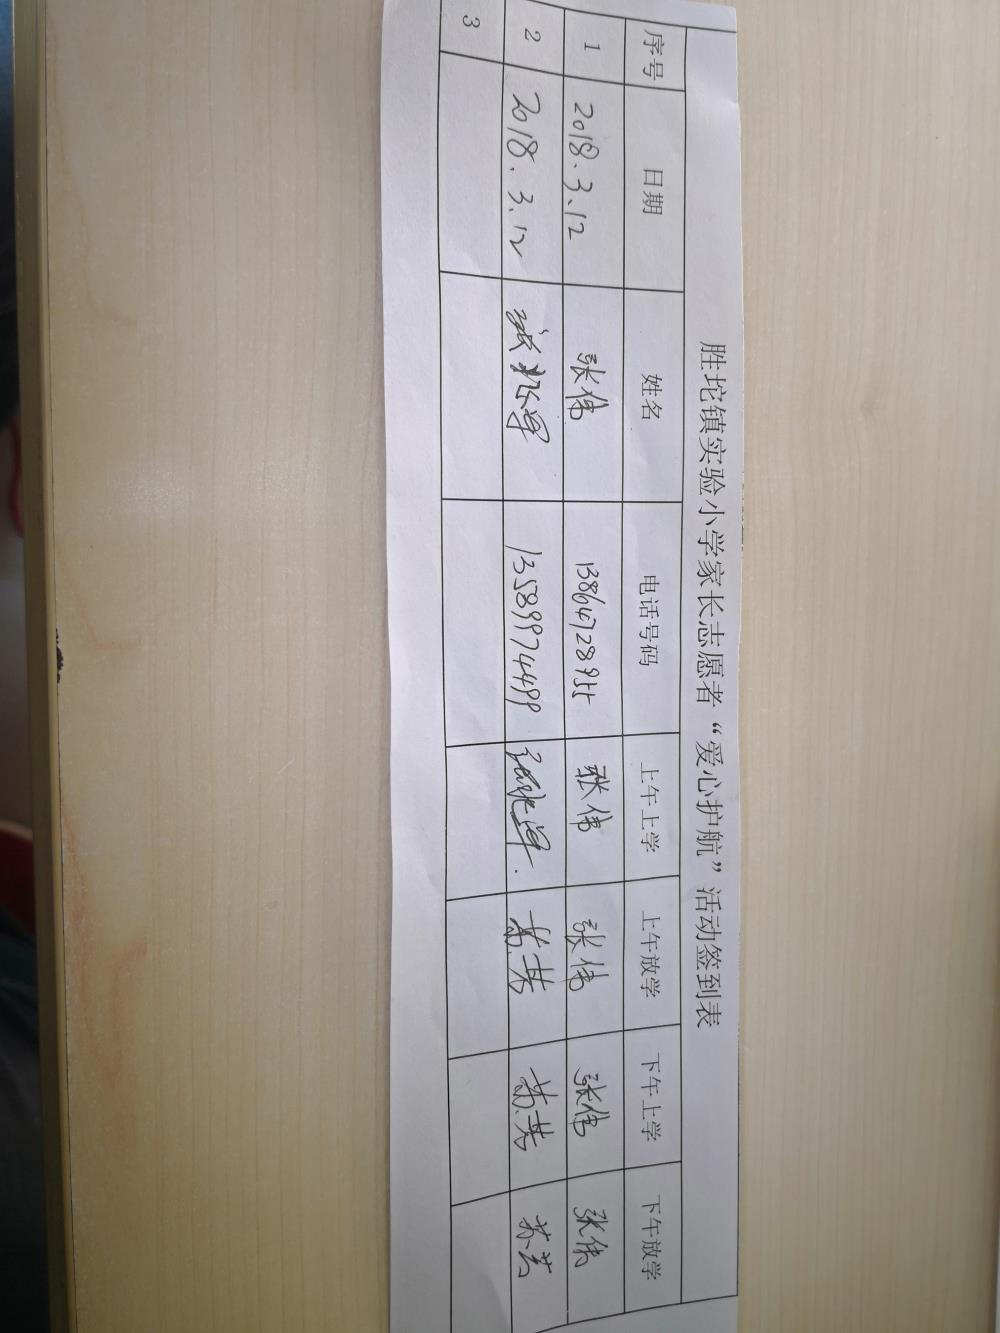 胜坨镇实验小学家长志愿者“爱心护航”活动签到表
序号 日期 姓名 电话号码 上午上学 上午放学 下午上学 下午放学
1 2018.3.12 张伟 13864728955 张伟 张伟 张伟 张伟
2 2018.3.12 13589974499
3